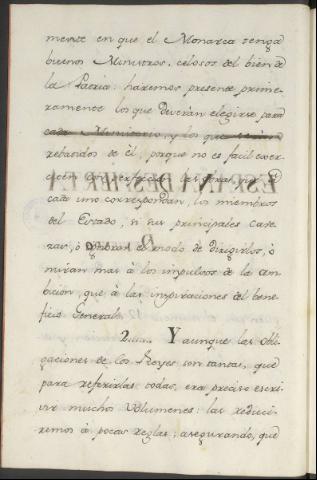 mente en que el Monarca tenga
buenos Ministros, celosos del bien de
la Patria: haremos presente prime-
ramente los que deveràn elegirse para
cada Ministerio, y los que seràn
rebatidos de èl, porque no es facil exer-
citen con perfeccion las obras que à
cada uno correspondan, los miembros
del Estado, si sus principales Cave-
zas, ò ignoran el modo de dirigirlos, ò
miran mas à los impulsos de la am-
bicion, que à las inspiraciones del bene-
ficio General.
2. Y aunque las obli-
gaciones de los Reyes son tantas, que
para referirlas todas, era preciso escri-
vir muchos Volumenes: las reduci-
remos à pocas reglas; asegurando, que